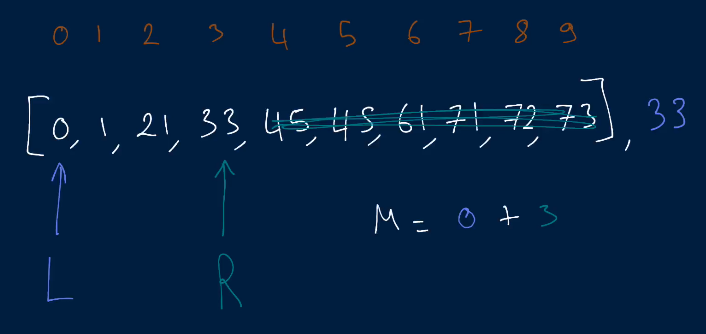 0 1 2 3 4 5 6 7 8 9
[0, 1, 21, 33, 45, 45, 61, 71, 72, 73], 33
M = 0 + 3
L R